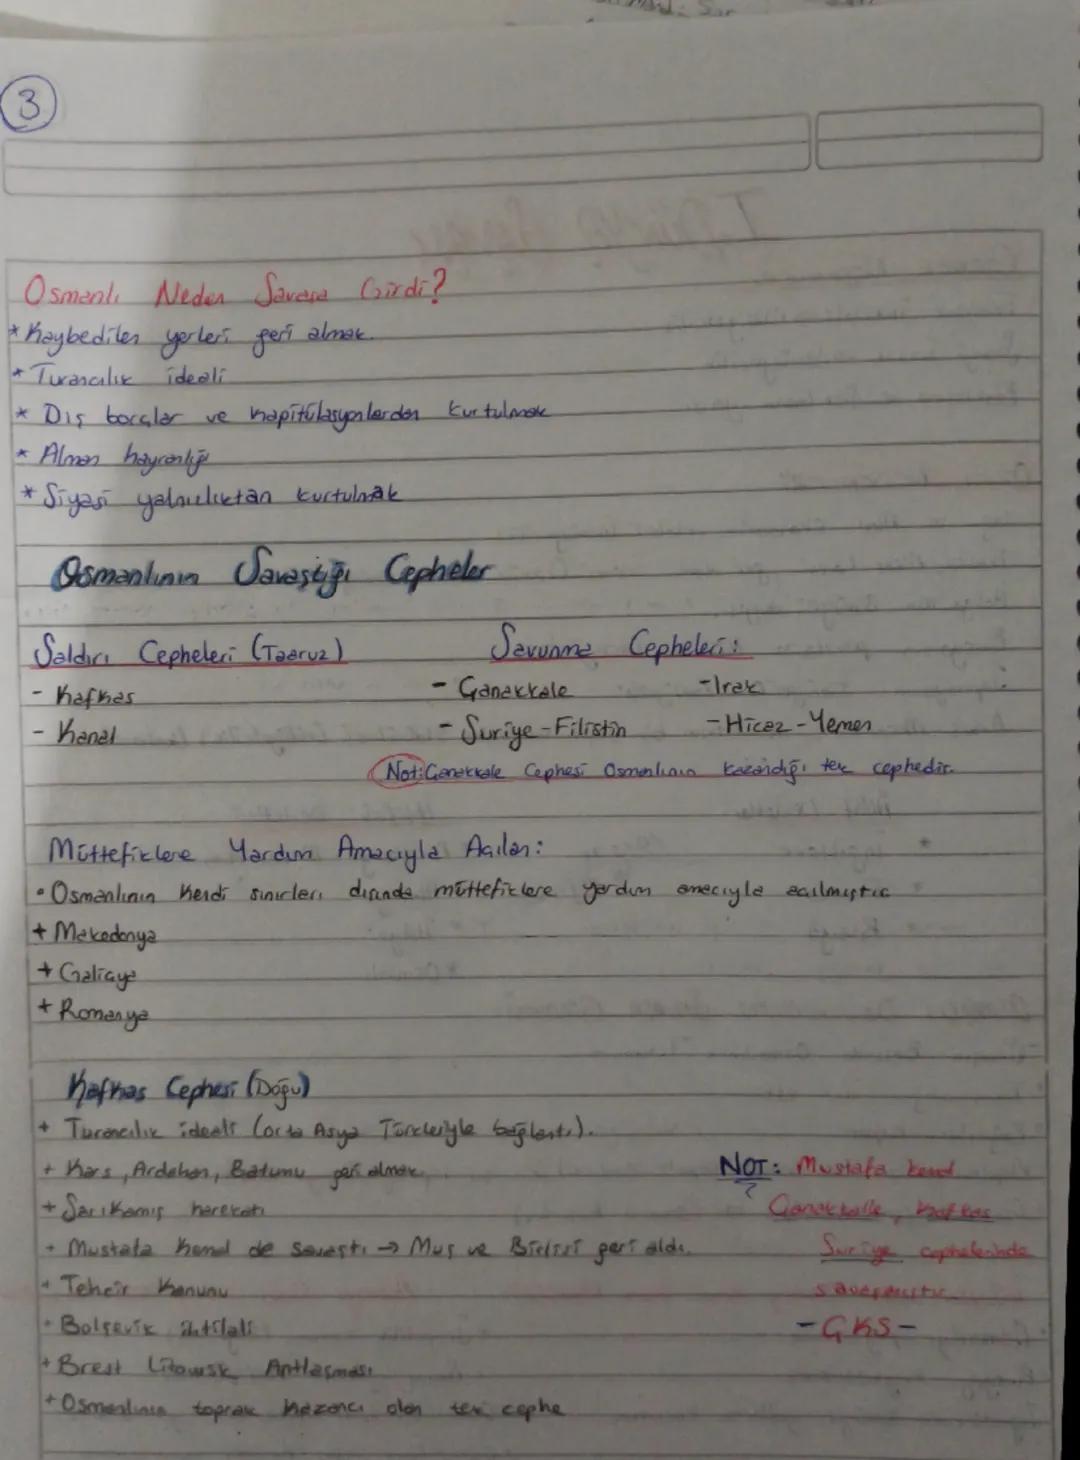 3
Osmanlı Neden Savaşa Girdi?
* Kaybedilen yerleri geri almak.
* Turancılık ideali
* Dış borçlar ve kapitülasyonlardan kurtulmak
* Alman hayranlığı
* Siyasi yalnızlıktan kurtulmak
Osmanlının Savaştığı Cepheler
Saldırı Cepheleri (Taaruz)
- Kafkas
- Kanal
Savunma Cepheleri:
- Çanakkale - Irak
- Suriye - Filistin - Hicaz - Yemen
Not: Çanakkale Cephesi Osmanlının kazandığı tek cephedir.
Müttefiklere Yardım Amacıyla Açılan:
• Osmanlının kendi sınırları dışında müttefiklere yardım amacıyla açılmıştır
+ Makedonya
+ Galiçya
+ Romanya
Kafkas Cephesi (Doğu)
+ Turancılık ideali (orta Asya Türkleriyle bağlantı).
+ Kars, Ardahan, Batumu geri almak.
+ Sarıkamış harekatı
+ Mustafa Kemal de savaştı → Muş ve Bitlisi geri aldı.
+ Tehcir Kanunu
+ Bolşevik ihtilali
+ Brest Litowsk Antlaşması
+ Osmanlının toprak kazancı olan tek cephe
NOT: Mustafa kemal
Çanakkalle, Kafkas
Suriye cephelerinde
savaşmıştır.
- ÇKS -